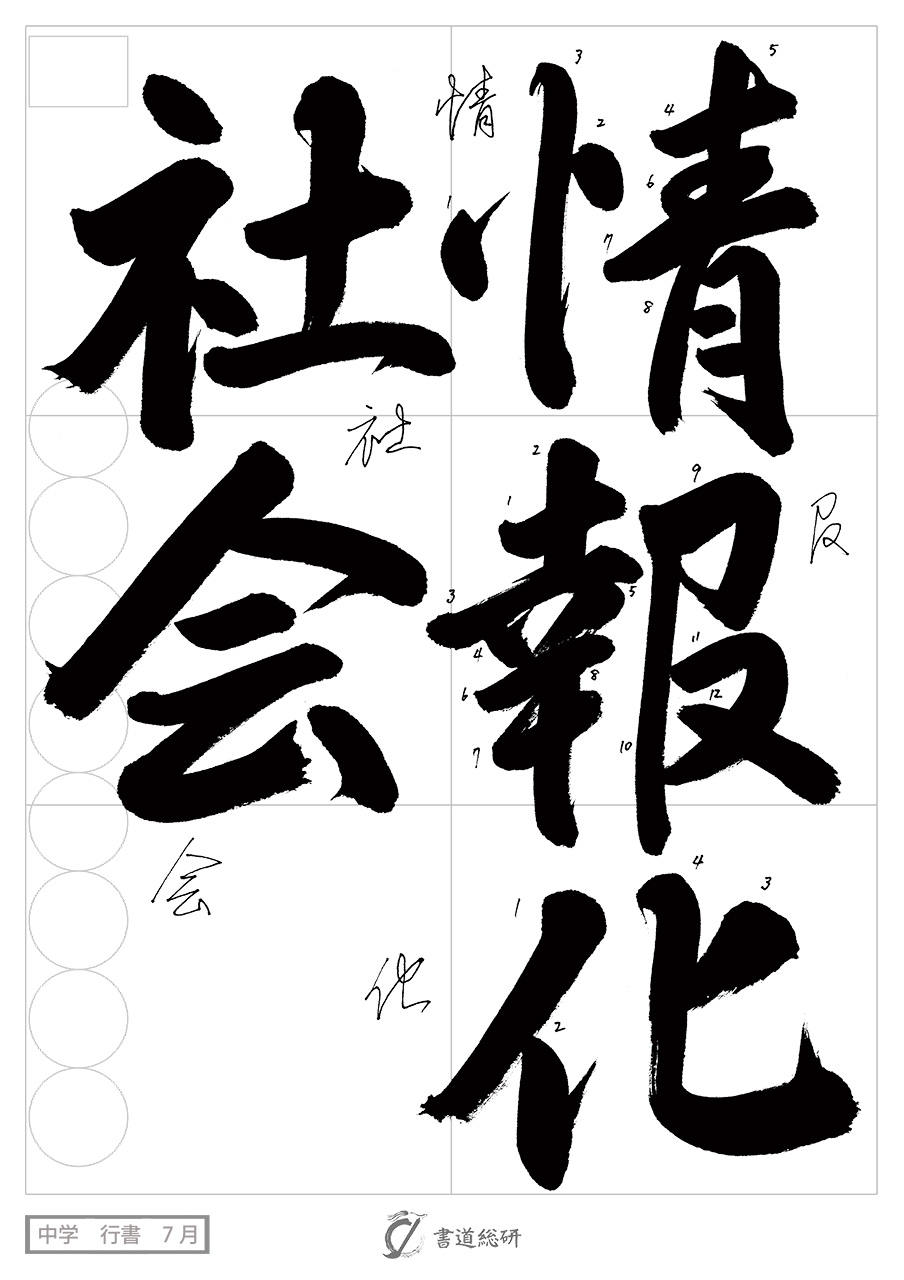 情報化
社会
情
1 2 3 4 5 6 7 8
社
1 2 3 4 5 6 7 8 9 10 11 12
会
化
1 2 3 4
中学 行書 7月
書道総研